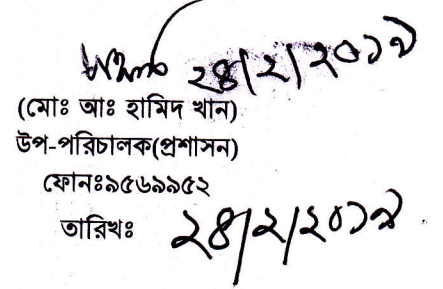 ২৪/২/২০১৯
(মোঃ আঃ হামিদ খান)
উপ-পরিচালক(প্রশাসন)
ফোনঃ৯৫৬৯৯৫২
তারিখঃ ২৪/২/২০১৯